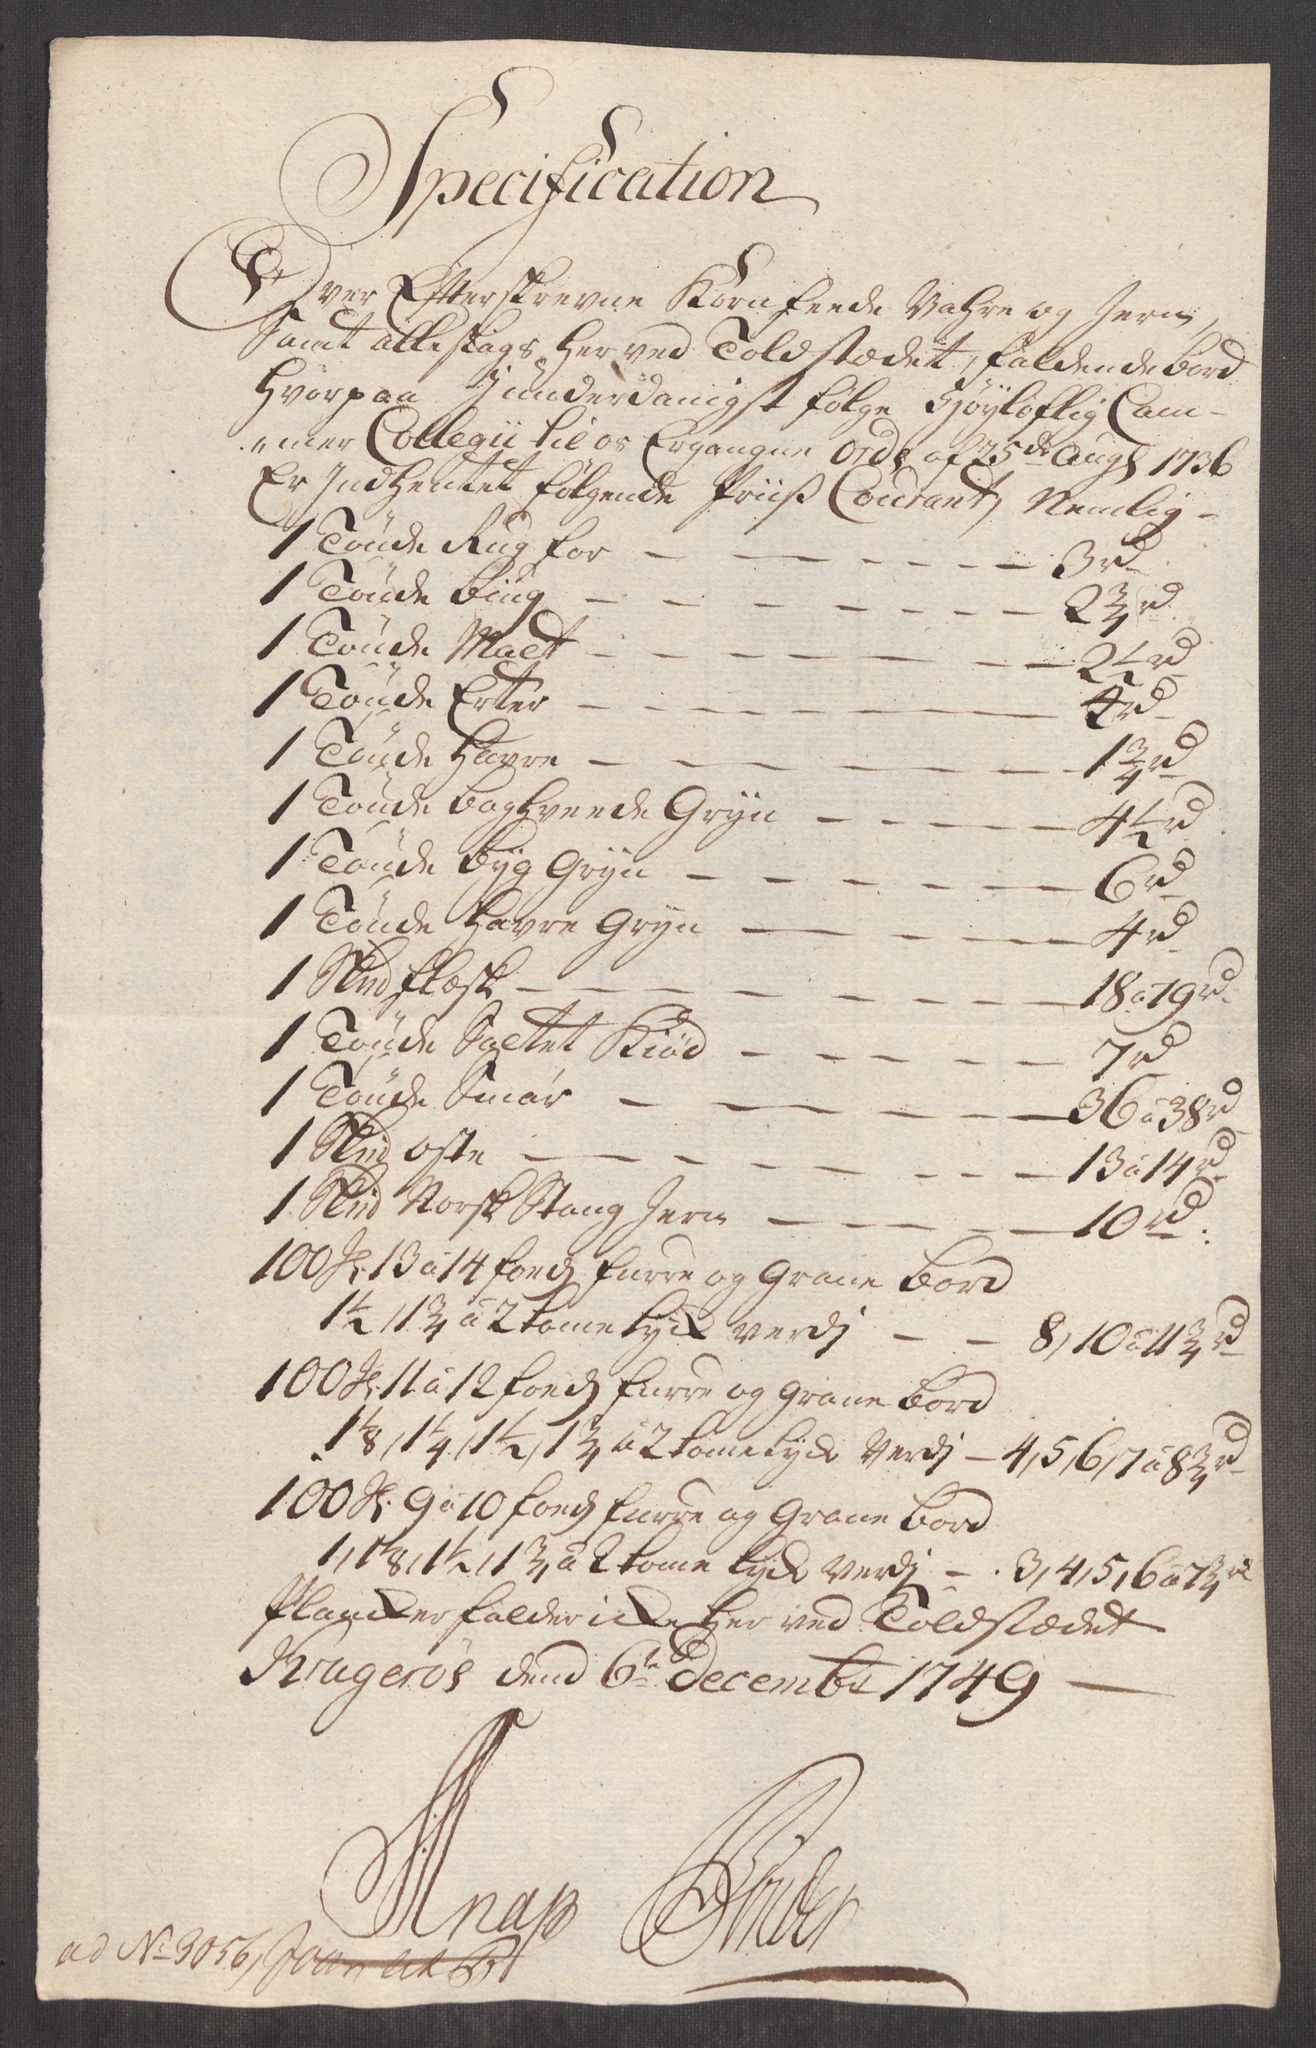 Specification
Over Efterskrevne Korn feede Vahre og Jern,
Samt alle slags her ved Toldstædet, faldende bord
Hvorpaa I underdanigst følge Høyloflig Cam-
mer Collegii til os Ergangne Ords af 25de Augs 1736
Er Indhentet følgende Priiss Courant, Nemlig -
1 Tønde Rug for - - - - - - - 3 rd
1 Tønde biug - - - - - - - - 2 3/4 rd
1 Tønde Malt - - - - - - - 2 1/2 rd
1 Tønde Erter - - - - - - - 4 rd
1 Tønde Havre - - - - - - - 1 3/4 rd
1 Tønde boghveede Gryn - - - - - 4 1/2 rd
1 Tønde byg Gryn - - - - - - 6 rd
1 Tønde Havre Gryn - - - - - 4 rd
1 Skud flesk - - - - - - - - 18 a 19 rd
1 Tønde Saltet Kiød - - - - - 7 rd
1 Tønde Smør - - - - - - 36 a 38 rd
1 Skud oste - - - - - - - - 13 a 14 rd
1 Skud Norsk Stang Jern - - - - 10 rd
100 St: 13 a 14 foeds furre og Grane bord
1 1/2, 1 3/4 a 2 tome tyck verdj - - 8, 10 a 11 3/4 rd
100 St: 11 a 12 foeds furre og Grane bord
1 1/8, 1 1/4, 1 1/2, 1 3/4 a 2 tome tyck Verdj - 4, 5, 6, 7 a 8 3/4 rd
100 St: 9 a 10 foeds furre og Grane bord
1, 1 1/8, 1 1/2, 1 3/4 a 2 tome tyck Verdj - 3, 4, 5, 6 a 7 3/4 rd
Plancker falder icke her ved Toldstædet
Kragerøe dend 6te Decembr 1749
Knap
ad No 3056